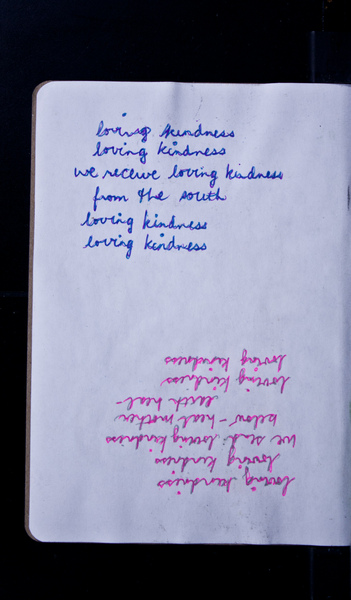 loving kindness
loving kindness
we receive loving kindness
from the south
loving kindness
loving kindness
loving kindness
loving kindness
we send loving kindness
below - heal mother
earth heal -
loving kindness
loving kindness